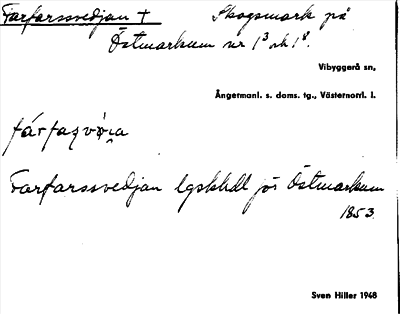 Farfarssvedjan + Skogsmark på
Östmarkum nr 1³ och 1⁸.
Vibyggerå sn,
Ångermanl. s. doms. tg., Västernorrl. l.
Farfarssvedjan lgskhdl för Östmarkum
1853
Sven Hiller 1948